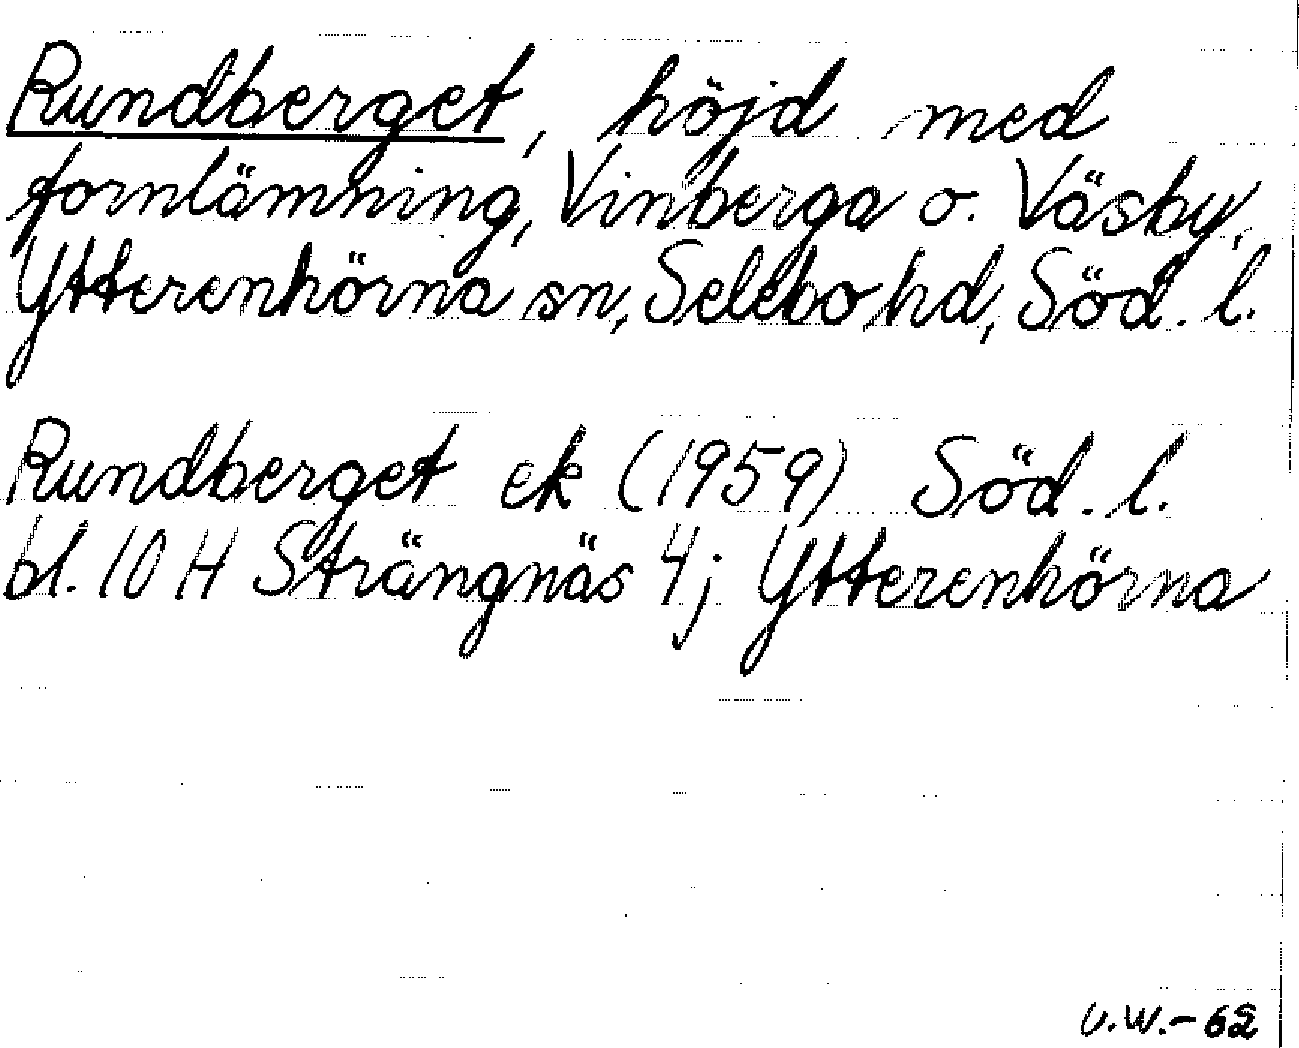 Rundberget, höjd med
fornlämning, Vinberga o. Väsby,
Ytterenhörna sn, Selebo hd, Söd. l.
Rundberget ek (1959) Söd. l.
bl. 10 H Strängnäs 4j Ytterenhörna
U.W.-62